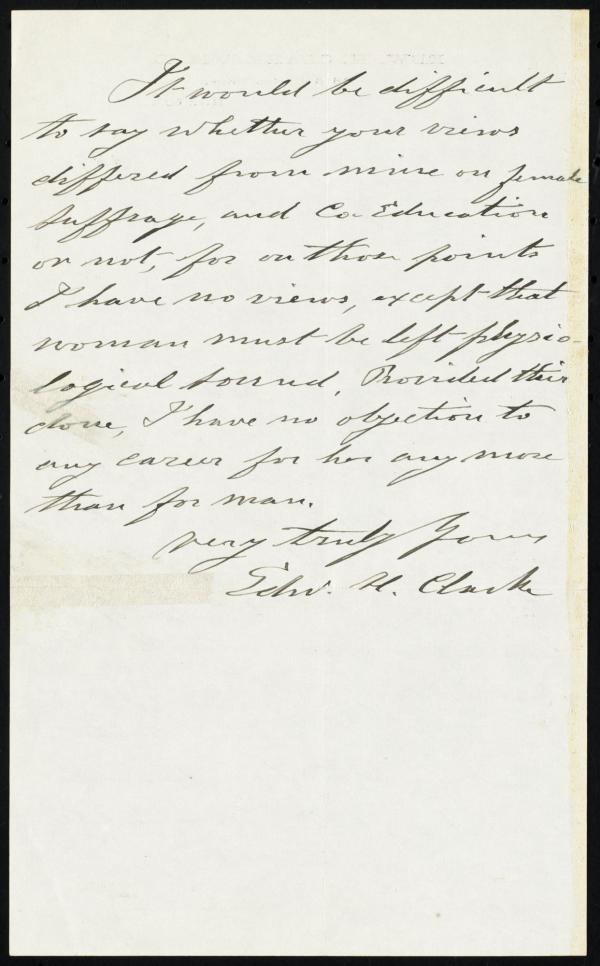 It would be difficult
to say whether your views
differed from mine on female
suffrage, and Co-Education
or not, for on those points
I have no views, except that
woman must be left physio-
logical sound. Provided this
done, I have no objection to
any career for her any more
than for man.
very truly yours
Edw. H. Clarke